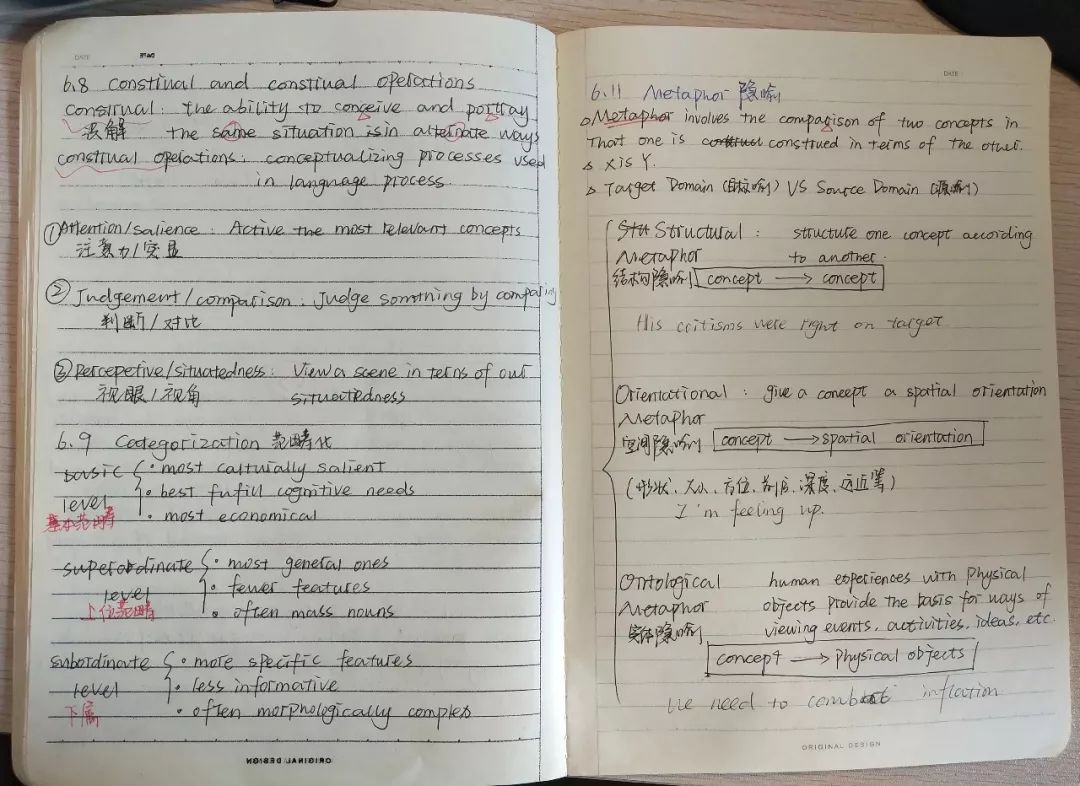 DATE
DATE
6.8 construal and construal operations
construal: the ability to conceive and portray
识解 the same situation is in alternate ways
construal operations: conceptualizing processes used
in language process.
①Attention/salience: Active the most relevant concepts
注意力/突显
② Judgement/comparison: Judge somthing by comparing
判断/对比
③ Percepetive/situatedness: View a scene in terms of our
视眼/视角 situatedness
6.9 Categorization 范畴化
basic • most culturally salient
level • best fufill cognitive needs
基本范畴 • most economical
superordinate • most general ones
level • fewer features
上位范畴 • often mass nouns
subordinate • more specific features
level • less informative
下属 • often morphologically complex
ORIGINAL DESIGN
DATE
6.11 Metaphor 隐喻
Metaphor involves the comparison of two concepts in
that one is construed in terms of the other.
X is Y.
Target Domain (目标喻) VS Source Domain (源喻)
Structural: structure one concept according
Metaphor to another.
结构隐喻 concept → concept
His critisms were right on target
Orientational: give a concept a spatial orientation
Metaphor
空间隐喻 concept → spatial orientation
(形状、大小、方位、前后、深度、远近等)
I'm feeling up.
Ontological human experiences with physical
Metaphor objects provide the basis for ways of
实体隐喻 viewing events, activities, ideas, etc.
concept → physical objects
We need to combat inflation
ORIGINAL DESIGN